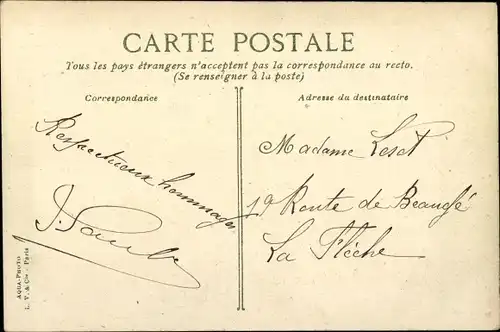 CARTE POSTALE
Tous les pays étrangers n'acceptent pas la correspondance au recto.
(Se renseigner à la poste)
Correspondance
Respectueux hommages
Adresse du destinataire
Madame
19 Route de Beaugé
La Flèche
AQUA-PHOTO
L. V. & Cie - Paris